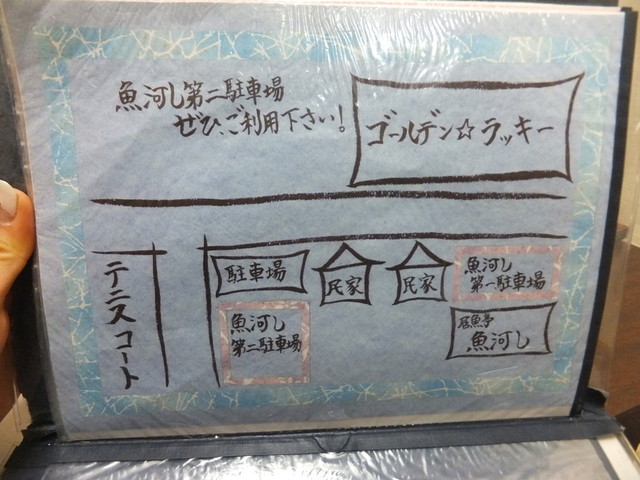 魚河し第二駐車場
ぜひ、ご利用下さい！
ゴールデン☆ラッキー
テニスコート
駐車場
民家
民家
魚河し
第一駐車場
魚河し
第二駐車場
居魚亭
魚河し